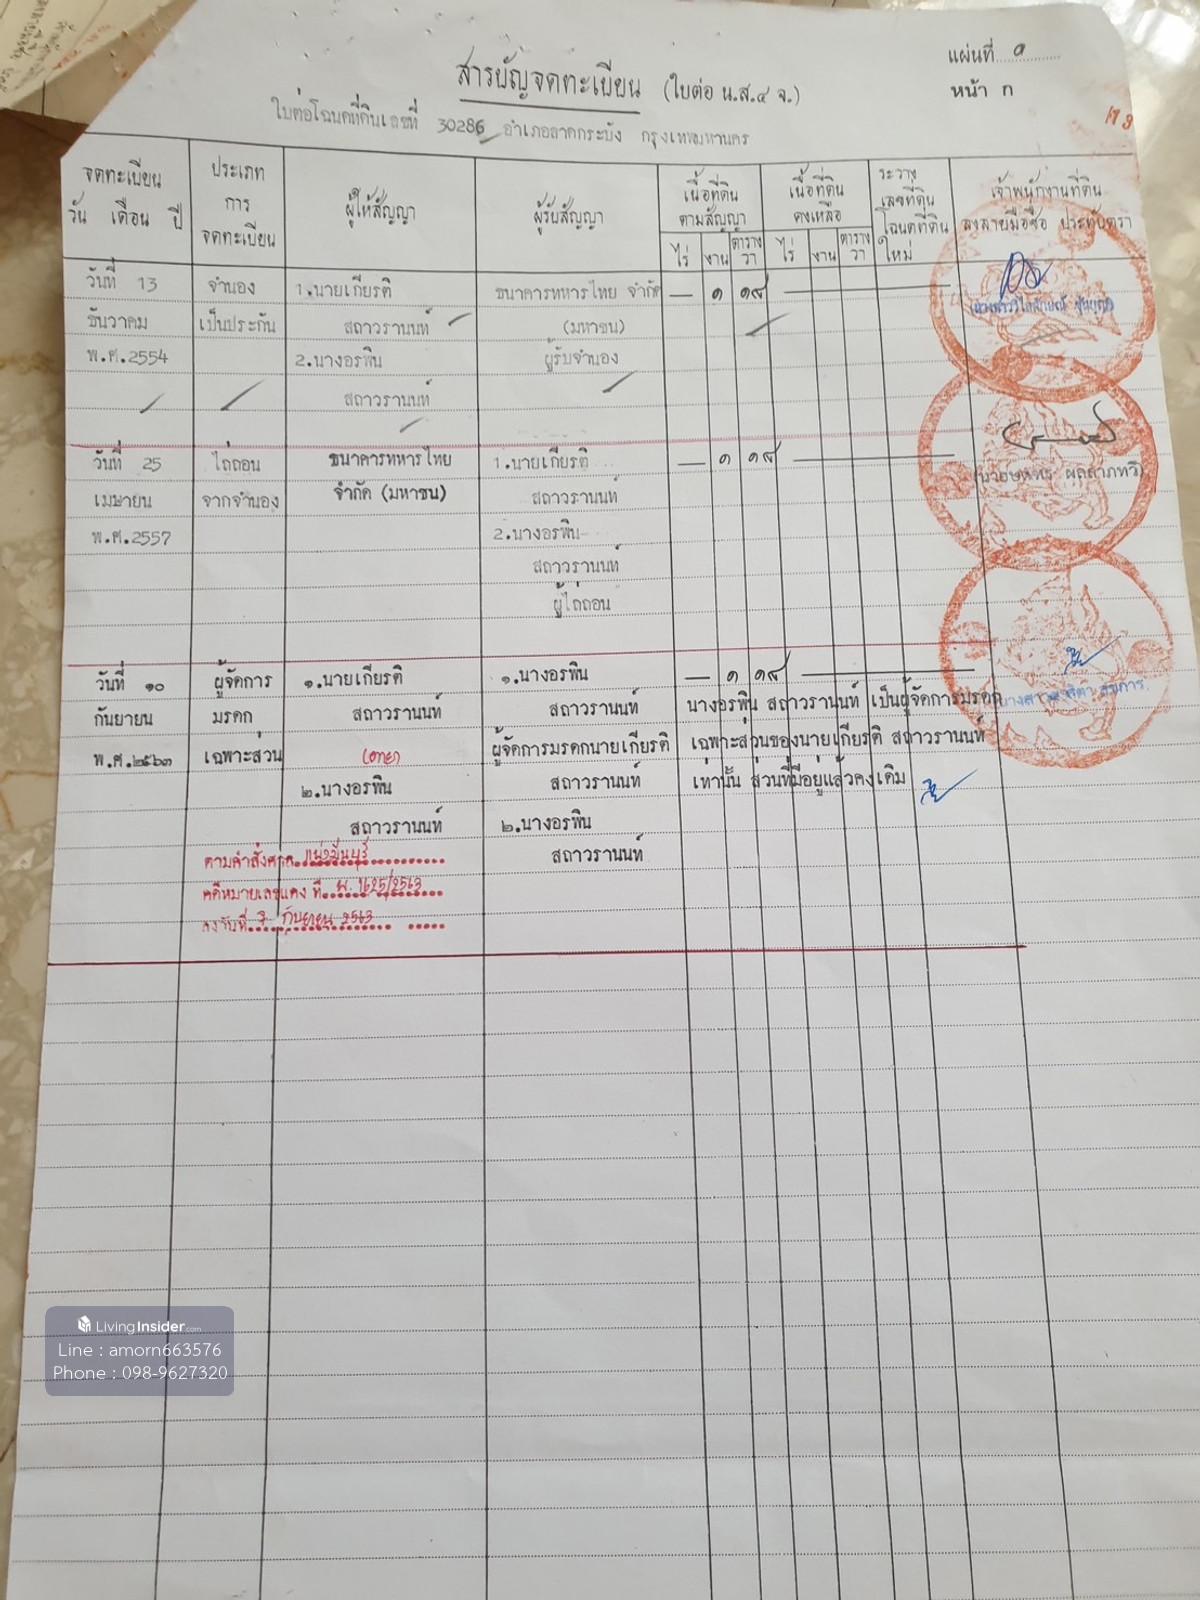 แผ่นที่ ๑
หน้า ก
สารบัญจดทะเบียน (ใบต่อ น.ส.๔ จ.)
ใบต่อโฉนดที่ดินเลขที่ 30286 อำเภอลาดกระบัง กรุงเทพมหานคร
จดทะเบียน วัน เดือน ปี
ประเภทการจดทะเบียน
ผู้ให้สัญญา
ผู้รับสัญญา
เนื้อที่ดินตามสัญญา
ไร่ งาน ตารางวา
เนื้อที่ดินคงเหลือ
ไร่ งาน ตารางวา
ระวาง เลขที่ดิน โฉนดที่ดินใหม่
เจ้าพนักงานที่ดิน ลงลายมือชื่อ ประทับตรา
วันที่ 13 จำนอง 1.นายเกียรติ ธนาคารทหารไทย จำกัด — ๑ ๑๘
ธันวาคม เป็นประกัน สถาวรานนท์ (มหาชน)
พ.ศ.2554 2.นางอรพิน ผู้รับจำนอง
สถาวรานนท์
วันที่ 25 ไถ่ถอน ธนาคารทหารไทย 1.นายเกียรติ — ๑ ๑๘
เมษายน จากจำนอง จำกัด (มหาชน) สถาวรานนท์
พ.ศ.2557 2.นางอรพิน
สถาวรานนท์
ผู้ไถ่ถอน
วันที่ ๑๐ ผู้จัดการ ๑.นายเกียรติ ๑.นางอรพิน — ๑ ๑๘
กันยายน มรดก สถาวรานนท์ สถาวรานนท์ นางอรพิน สถาวรานนท์ เป็นผู้จัดการมรดก
พ.ศ.๒๕๖๓ เฉพาะส่วน (ตาย) ผู้จัดการมรดกนายเกียรติ เฉพาะส่วนของนายเกียรติ สถาวรานนท์
๒.นางอรพิน สถาวรานนท์ เท่านั้น ส่วนที่มีอยู่แล้วคงเดิม
สถาวรานนท์ ๒.นางอรพิน
สถาวรานนท์
ตามคำสั่งศาล แพ่งมีนบุรี
คดีหมายเลขแดง ที่ พ.1625/2563
ลงวันที่ 3 กันยายน 2563
LivingInsider.com
Line : amorn663576
Phone : 098-9627320